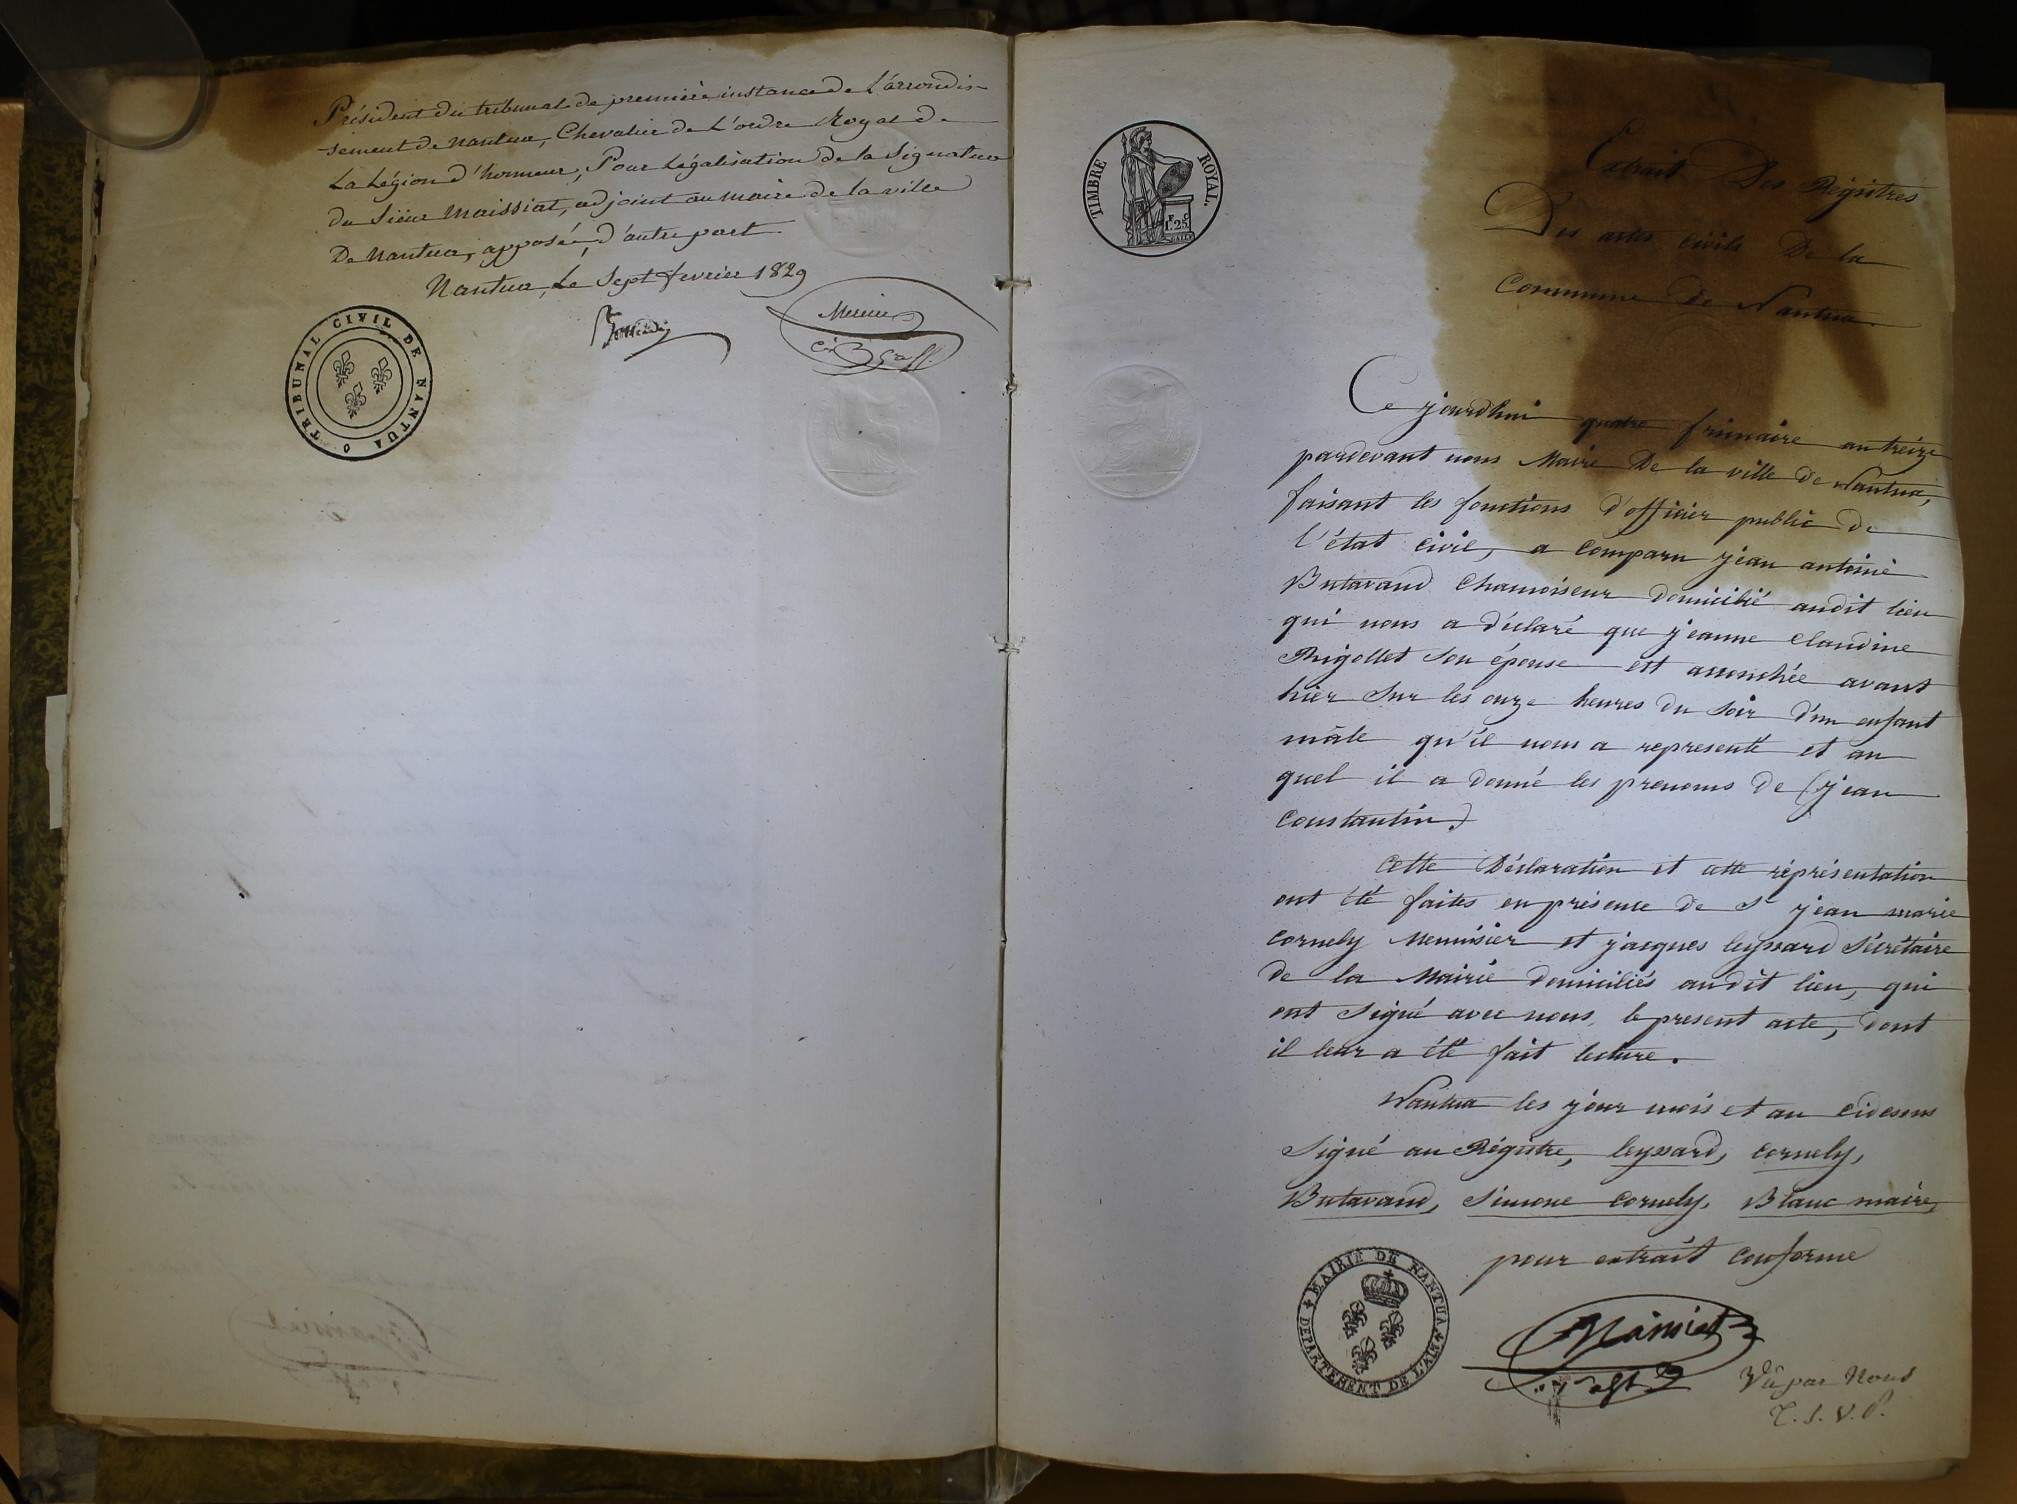 Président du tribunal de première instance de L'arrondis-
-sement de Nantua, Chevalier de L'ordre Royal de
La Légion d'honneur, Pour Légalisation de la Signature
du Sieur Maissiat, adjoint au maire de la ville
De Nantua, apposée d'autre part.
Nantua, Le Sept fevrier 1829
Mercier
TRIBUNAL CIVIL DE NANTUA
TIMBRE ROYAL.
F C
1.25
Extrait Des Régistres
Des actes civils De la
Commune De Nantua
Ce jourdhui quatre frimaire an treize
pardevant nous Maire De la ville de Nantua,
faisant les fonctions d'officier public de
l'état civil, a comparu jean antoine
Butavand Chamoiseur domicilié audit lieu
qui nous a déclaré que jeanne claudine
Rigollet son épouse est accouchée avant
hier sur les onze heures du soir d'un enfant
mâle qu'il nous a representé et au
quel il a donné les prenoms de (jean
constantin)
Cette Déclaration et cette réprésentation
ont été faites en présence de Sr jean marie
cornely Menuisier et jacques leyssard Sécrétaire
de la Mairie domiciliés audit lieu, qui
ont signé avec nous le present acte, dont
il leur a été fait lecture.
Nantua les jour mois et an cidessus
Signé au Régistre, leyssard, cornely,
Butavand, Simone cornely, Blanc maire,
pour extrait conforme
MAIRIE DE NANTUA
DEPARTEMENT DE L'AIN
Maissiat
Vû par Nous
T.S.V.P.